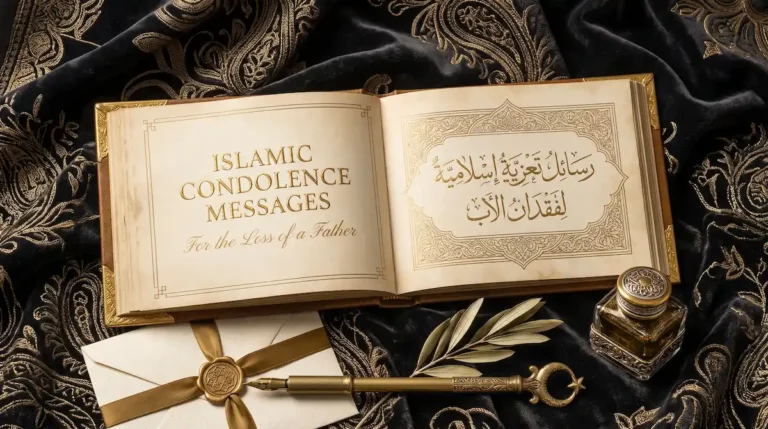 ISLAMIC
CONDOLENCE
MESSAGES
For the Loss of a Father
رسائل تعزيّة إسلاميّة
لفقدان الأب